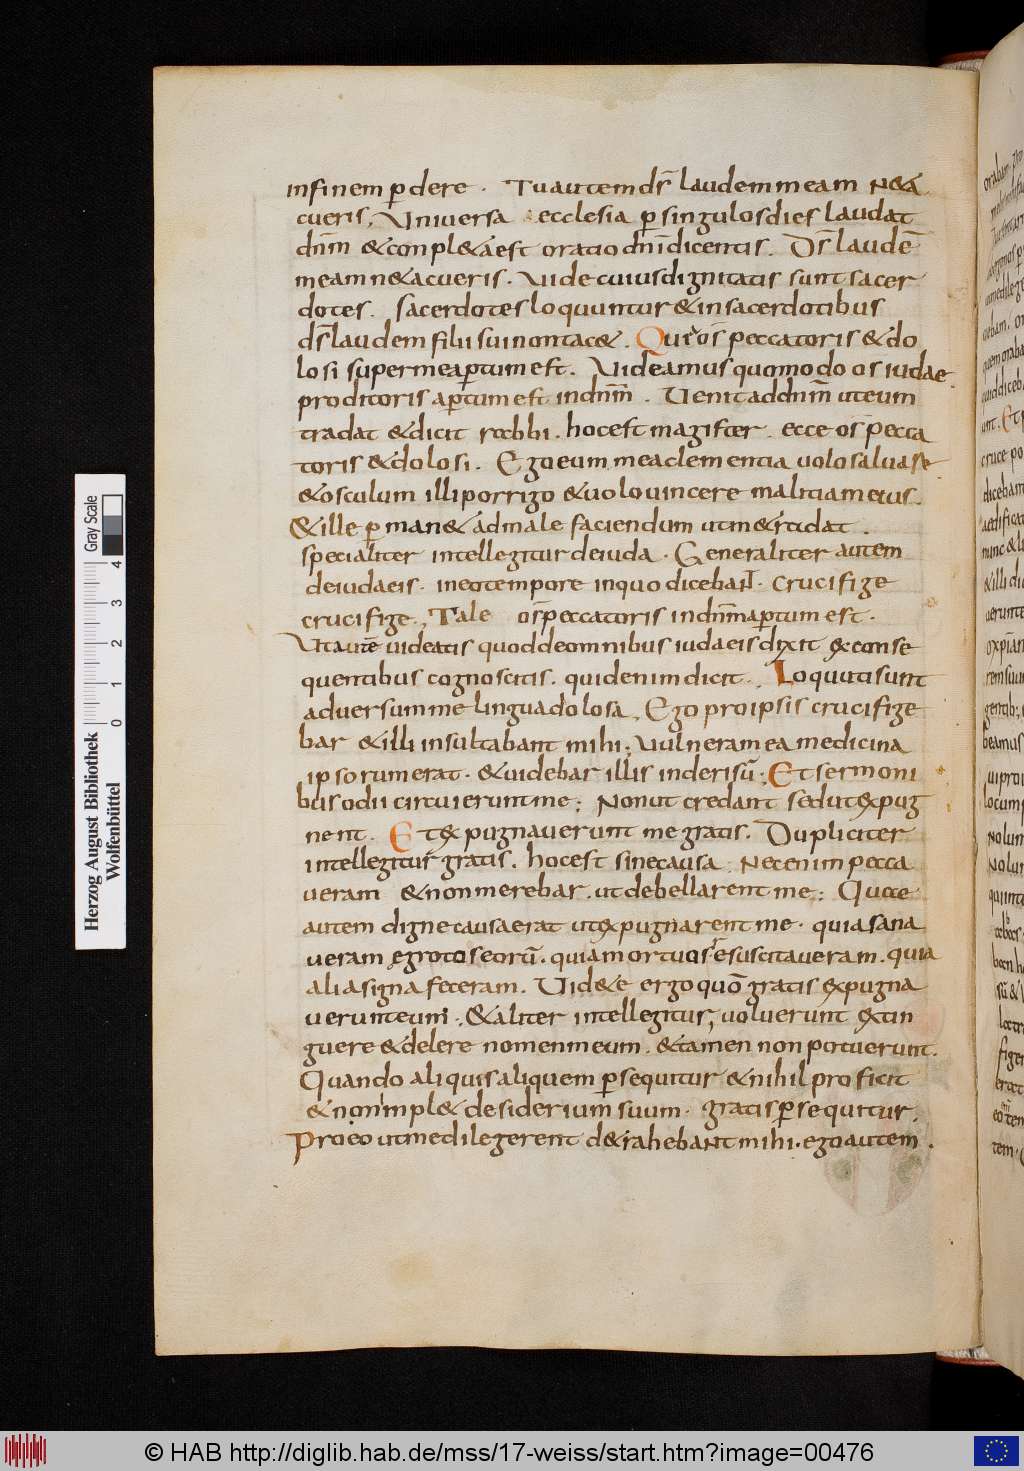 infinem ꝑdere · Tu autem dr̄ laudem meam n&a
cueris, Vniversa ecclesia ꝑ singulos dies laudat
dn̄m & conpl&a est oratio dn̄i dicentis. Ds̄ laudē
meam n& acueris · Vide cuius dignitatis sunt sacer
dotes. sacerdotes loquuntur & in sacerdotibus
ds̄ laudem filii sui non tac&. Quia os peccatoris & do
losi super me aꝑtum est. Videamus quomodo os iudae
proditoris aꝑtum est in dn̄m. Venit ad dn̄m ut eum
tradat & dicit rabbi. hoc est magister. ecce os pecca
toris & dolosi. Ego eum mea clementia volo salvare
& osculum illi porrigo & volo vincere malitiam eius.
& ille ꝑman& ad male faciendum ut m& radat.
specialiter intellegitur de iuda. Generaliter autem
de iudaeis. in eo tempore in quo dicebant. crucifige
crucifige. Tale os peccatoris in dn̄m aꝑtum est.
Vt autē videatis quod de omnibus iudaeis dixit ex conse
quentibus cognoscitis. quid enim dicit. Loquuti sunt
adversum me lingua dolosa. Ego pro ipsis crucifige
bar & illi insultabant mihi; vulnera mea medicina
ipsorum erat. & videbar illis in derisū; Et sermoni
bus odii circuierunt me; Non ut credant sed ut expug
nent. Et expugnaverunt me gratis. Dupliciter
intellegitur gratis. hoc est sine causa. Nec enim pecca
veram & non merebar. ut debellarent me; Quae
autem digne causa erat ut expugnarent me. quia sana
veram egrotos eorū. quia mortuos resuscitaveram. quia
alia signa feceram. Vid&e ergo quō gratis expugna
verunt eum. & aliter intellegitur, voluerunt extin
guere & delere nomen meum. & tamen non potuerunt.
Quando aliquis aliquem ꝑsequitur & nihil proficit
& non impl& desiderium suum. gratis ꝑsequitur.
Pro eo ut me dilegerent d&rahebant mihi. ego autem.
Herzog August Bibliothek
Wolfenbüttel
Gray Scale
0 1 2 3 4
© HAB http://diglib.hab.de/mss/17-weiss/start.htm?image=00476